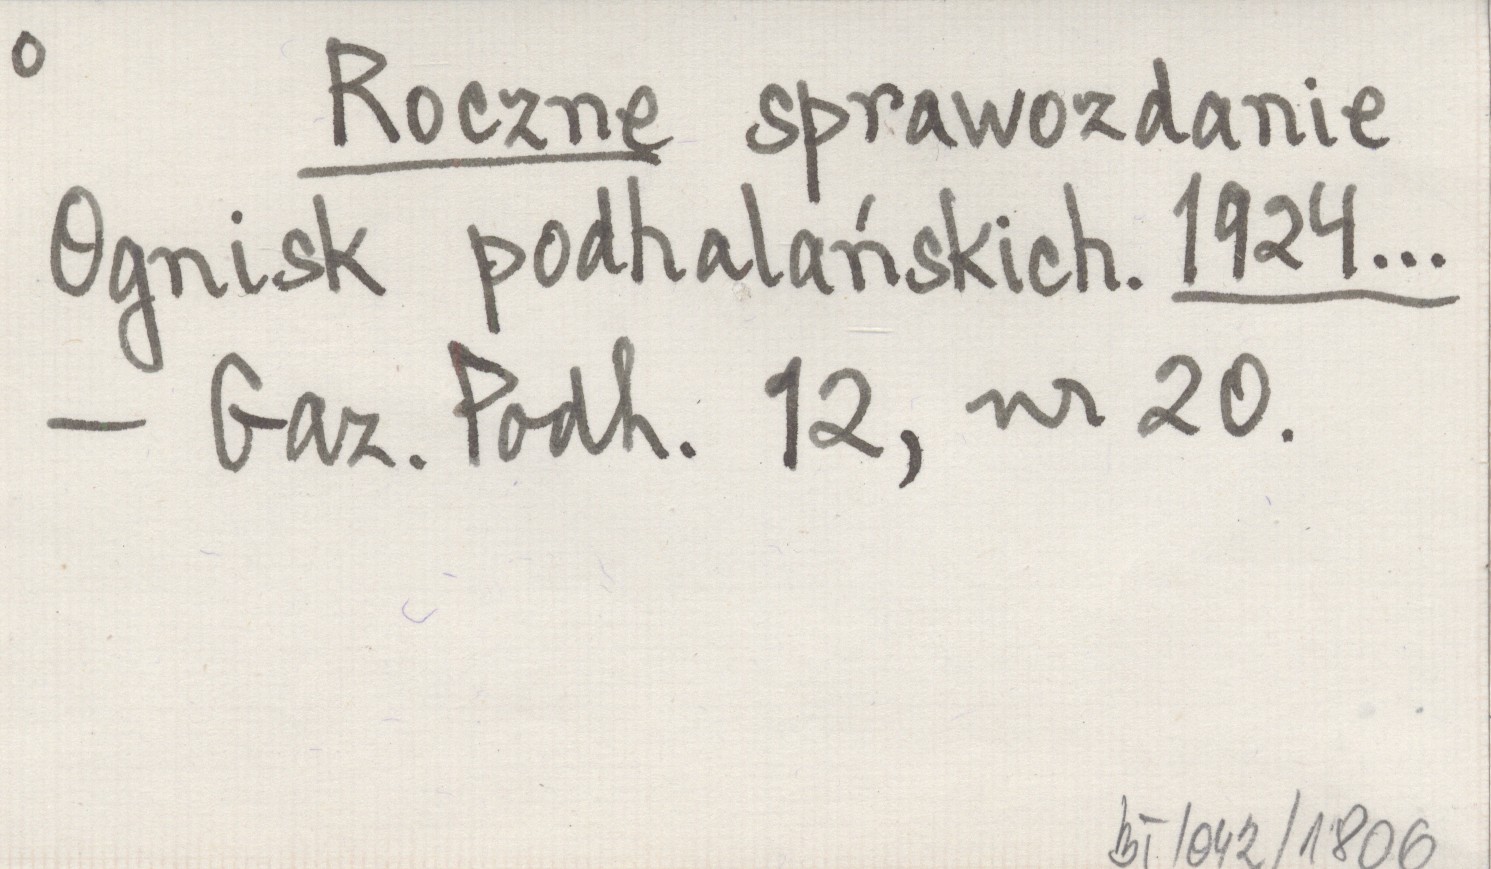 o
Roczne sprawozdanie
Ognisk podhalańskich. 1924...
— Gaz. Podh. 12, nr 20.
BT/042/1806